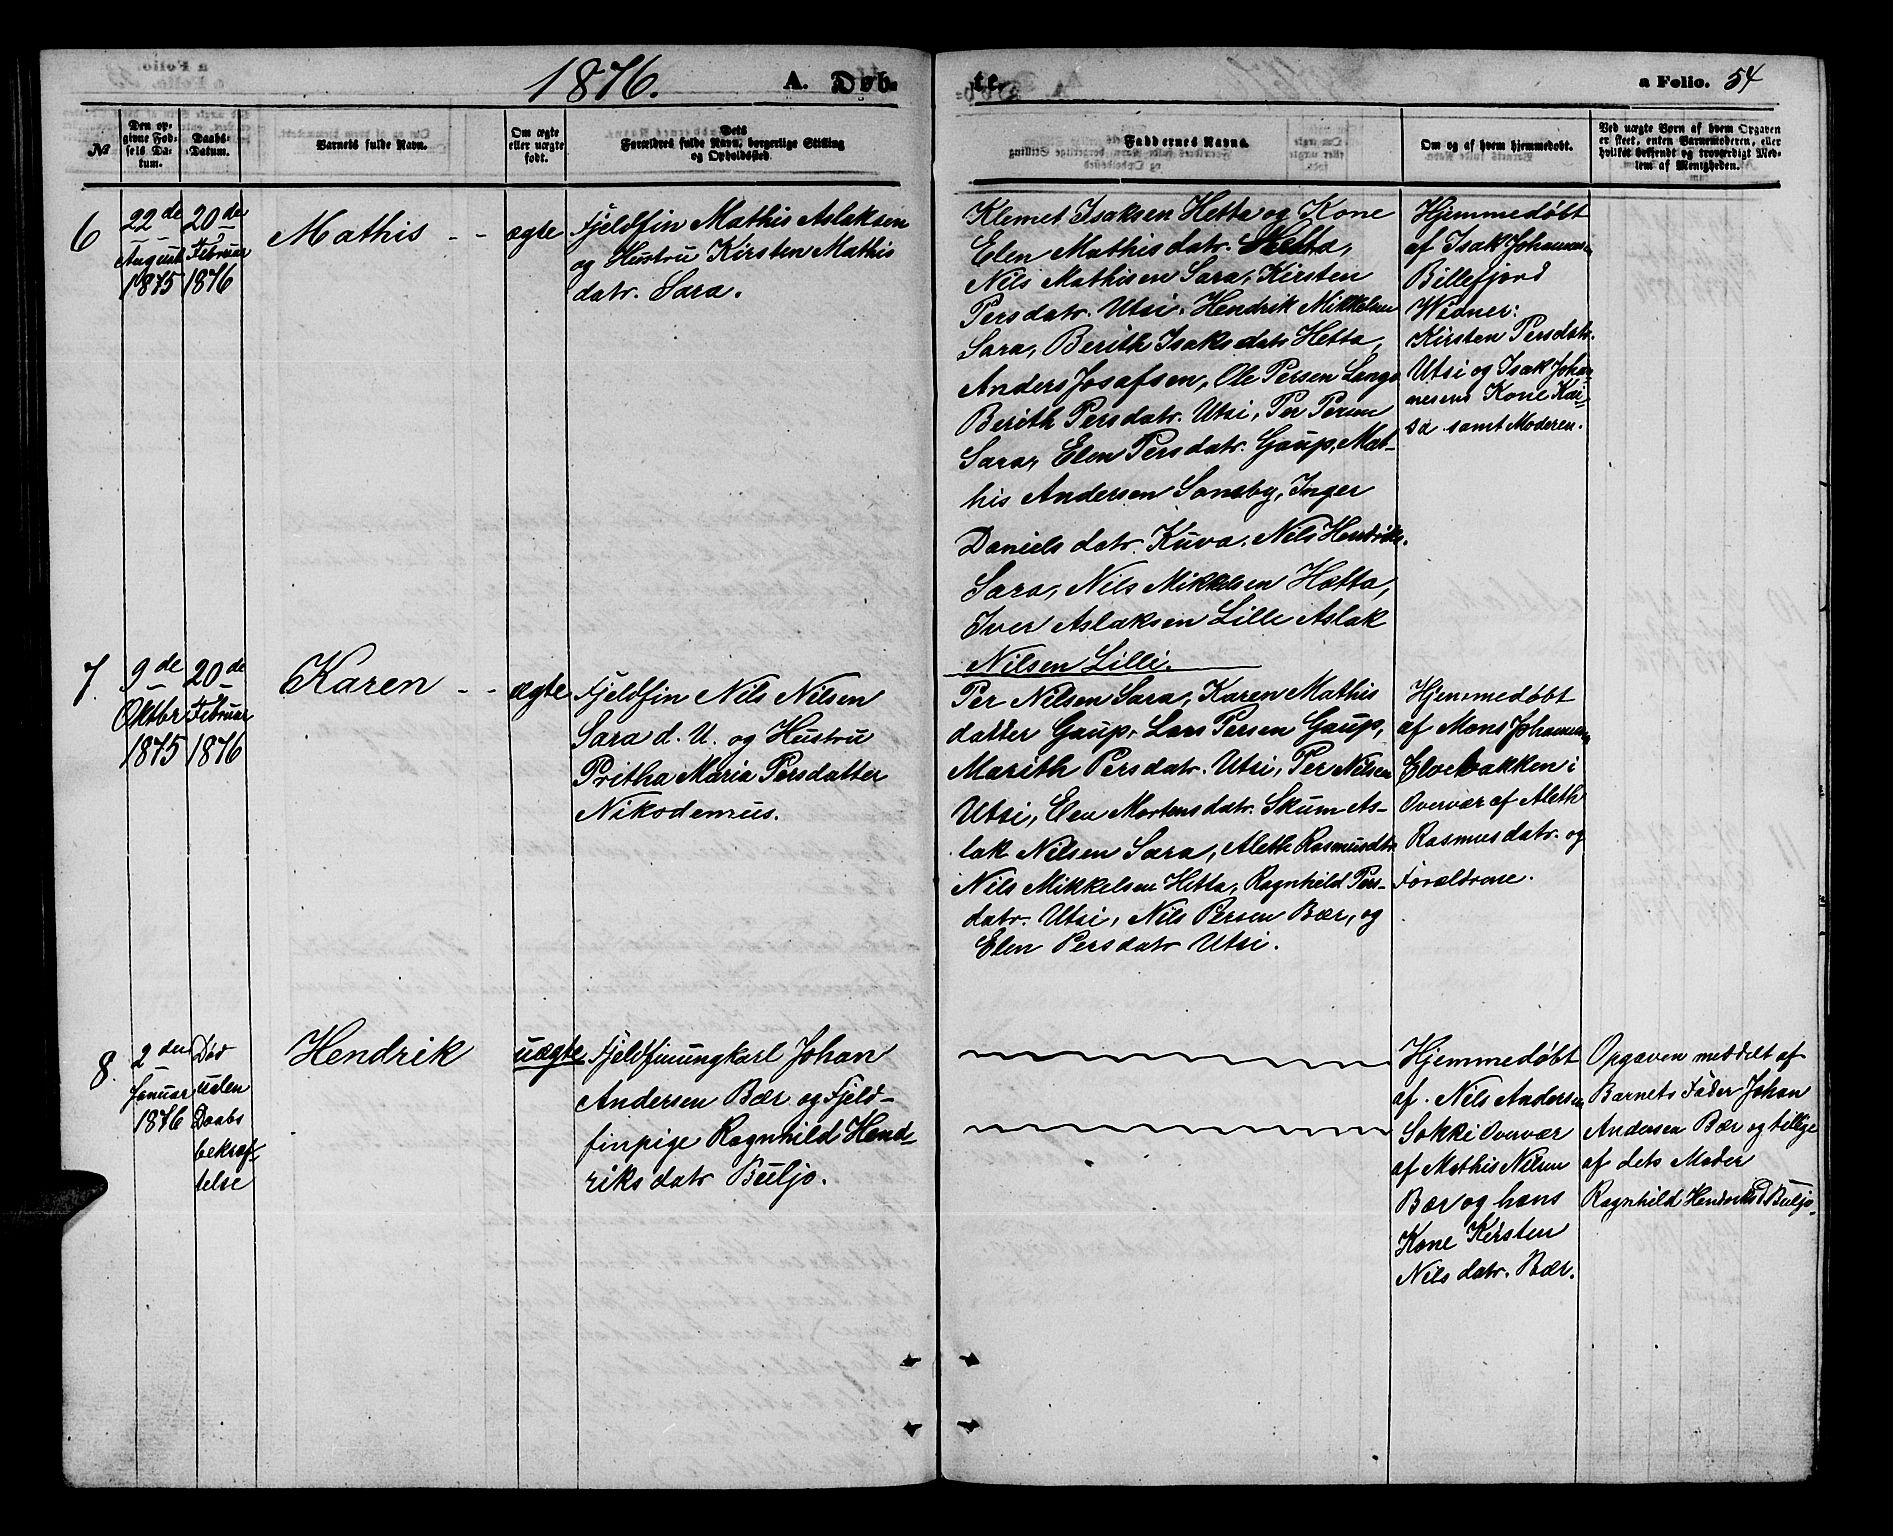 1876.
A. Døb-
te.
a Folio. 54
№
Den op-
givne Fød-
sels Da-
tum.
Daabs-
Datum.
Barnets fulde Navn.
Om ægte
eller uægte
født.
Dets
Forældres fulde Navn, borgerlige Stilling
og Opholdssted.
Faddernes Navne.
Om og af hvem hjemmedøbt.
Ved uægte Børn af hvem Opgaven
er skeet, enten Barnemoderen, eller
hvilket bekjendt og troværdigt Med-
lem af Menigheden.
6
22de
August
1875
20de
Februar
1876
Mathis - -
ægte
Fjeldfin Mathis Aslaksen
og Hustru Kirsten Mathis
datr. Sara.
Klemet Isaksen Hetta og Kone
Elen Mathisdatr. Hetta,
Nils Mathisen Sara, Kirsten
Persdatr. Utsi. Hendrik Mikkelsen
Sara, Berith Isaksdatr Hetta,
Anders Josafsen, Ole Persen Lango
Berith Persdatr. Utsi, Per Persen
Sara, Elen Persdatr. Gaup, Mat-
his Andersen Somby, Inger
Daniels datr. Kuva. Nils Hendriks.
Sara, Nils Mikkelsen Hætta,
Iver Aslaksen Lille Aslak
Nilsen Lilli.
Hjemmedøbt
af Isak Johannesen
Billefjord
Vidner:
Kirsten Persdatr.
Utsi og Isak Johan-
nesens Kone Kai-
sa samt Moderen.
7.
9de
Oktbr
1875
20de
Februar
1876
Karen - -
ægte
Fjeldfin Nils Nilsen
Sara d. U. og Hustru
Pritha Maria Persdatter
Nikodemus.
Per Nilsen Sara, Karen Mathis
datter Gaup, Lars Persen Gaup,
Marith Persdatr. Utsi, Per Nilsen
Utsi, Elen Mortensdatr. Skum As-
lak Nilsen Sara, Aleth Rasmusdtr
Nils Mikkelsen Hetta, Ragnhild Pers-
datr. Utsi, Nils Persen Bær, og
Elen Persdatr Utsi.
Hjemmedøbt
af Mons Johannesen
Elvebakken i
Overvær af Aleth
Rasmusdatr. og
Forældrene.
8.
2den
Januar
1876
Død
uden
Daabs
bekræf-
telse
Hendrik
uægte
Fjeldfinungkarl Johan
Andersen Bær og Fjeld-
finpige Ragnhild Hend-
riksdatr Buljo.
Hjemmedøbt
af. Nils Andersen
Sokki Overvær
af Mathis Nilsen
Bær og hans
Kone Kirsten
Nilsdatr. Bær.
Opgaven meddelt af
Barnets Fader Johan
Andersen Bær og tillige
af dets Moder
Ragnhild Hendriksd Buljo.